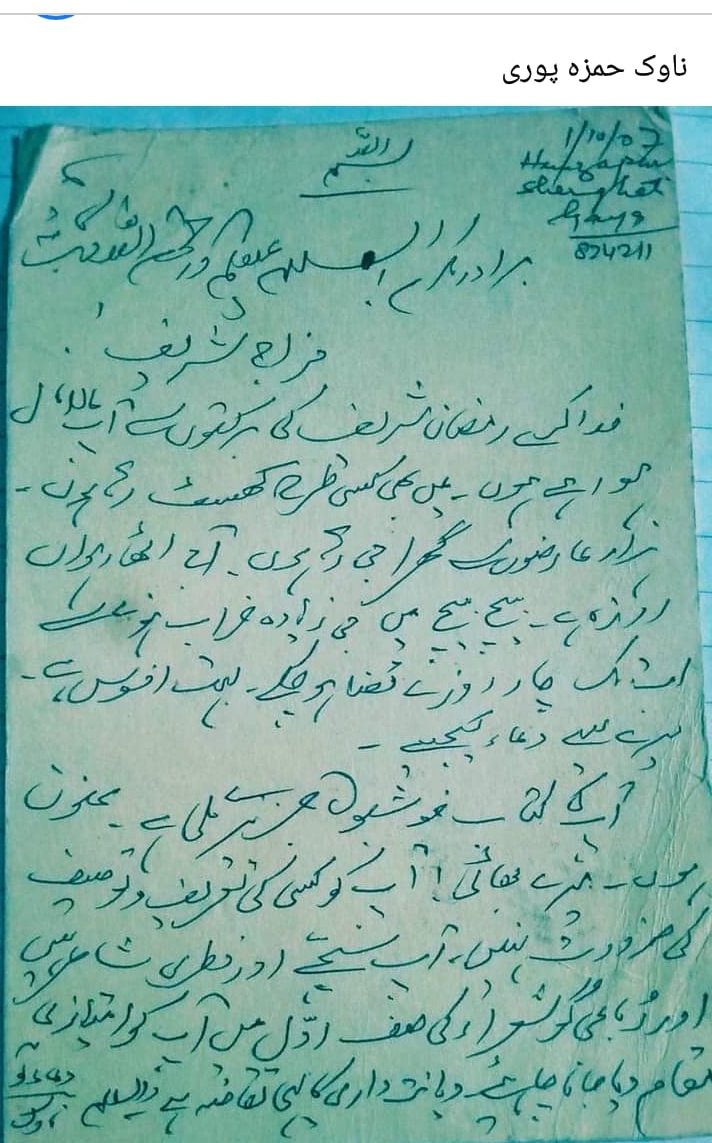 ناوک حمزہ پوری
1/10/07
Hamzapur
Sherghati
Gaya
824211
برادر مکرم! السلام علیکم ورحمۃ اللہ
مزاج شریف!
خدا کرے رمضان شریف کی برکتوں سے آپ مالا مال
ہو رہے ہوں۔ میں بھی کسی طرح گھسیٹ رہا ہوں۔
ہزار عارضوں سے گھرا جی رہا ہوں۔ آج اٹھارہواں
روزہ ہے۔ بیچ بیچ میں جی زیادہ خراب ہونے سے
اب تک چار روزے قضا ہو چکے۔ بہت افسوس ہے۔
میرے لیے دعاء کیجیے۔
آپ کی کتاب خوشبوؤں ملی ہے۔ ممنون
ہوں۔ میرے بھائی! آپ کو کسی کی تعریف و توصیف
کی ضرورت نہیں۔ آپ سچے اور فطری شاعر ہیں
اور رباعی گو شعراء کی صف اوّل میں آپ کو امتیازی
مقام دیا جانا چاہئے دیانت داری کا یہی تقاضہ ہے والسلام
دعاء گو
ناوک